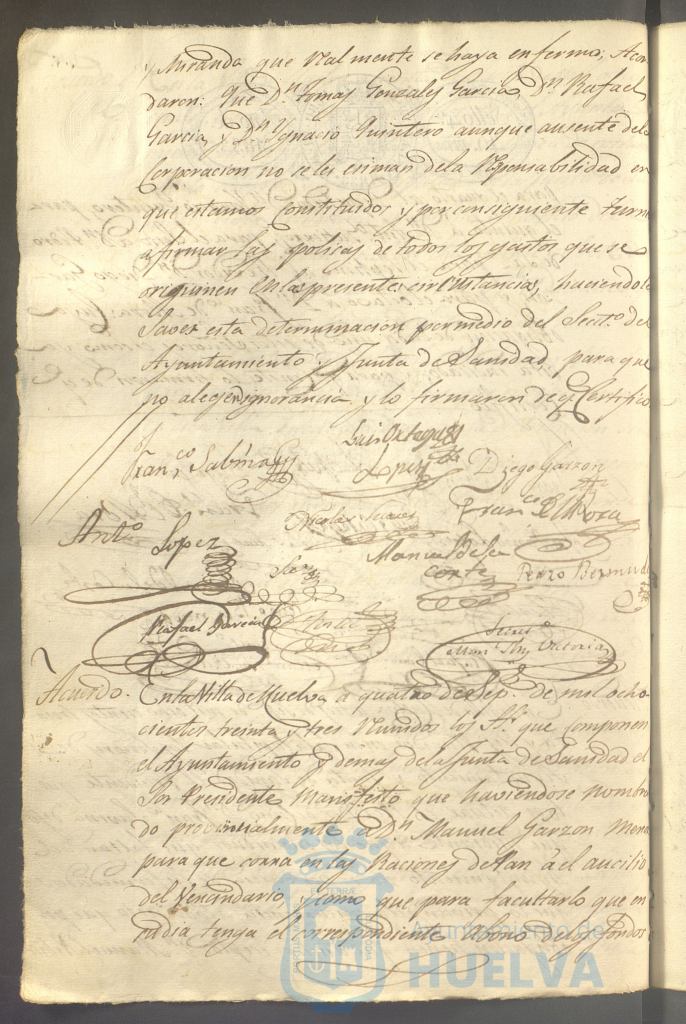 y Miranda que realmente se haya enfermo; Acor
daron: Que Dn. Tomas Gonzales Garcia, Dn. Rafael
Garcia, y Dn. Ygnacio Quintero aunque ausente dela
Corporacion no seles eximan dela responsabilidad en
que estamos constituidos y por consiguiente
afirmar las polisas de todos los gastos que se
originen en las presentes circunstancias, haciendole
saver esta determinacion por medio del Sectº. del
Ayuntamiento y Junta de Sanidad para que
no aleguen ignorancia y lo firmaron de q. Certifico
Franco. Sabina
Luis Ortega
Lopez
Diego Garzon
Nicolas Suares
Franco. de Mora
Anto. Lopez
Manuel de la
Corte
Pedro Bermud
Rafael Garcia
Man. Victoria
Acuerdo. En la Villa de Huelva a quatro de Sep. de mil ocho
cientos treinta y tres reunidos los Sres. que componen
el Ayuntamiento y demas dela Junta de Sanidad el
Sor Precidente manifesto que haviendose nombra
do provincialmente a Dn. Manuel Garzon Mora
para que corra en las Raciones de Pan à el aucilio
del Vecindario, y como que para facultarlo que en
su dia tenga el correspondiente abono delos fondos
PORTUS MARIS ET TERRAE CUSTODIA
Ayuntamiento de
HUELVA